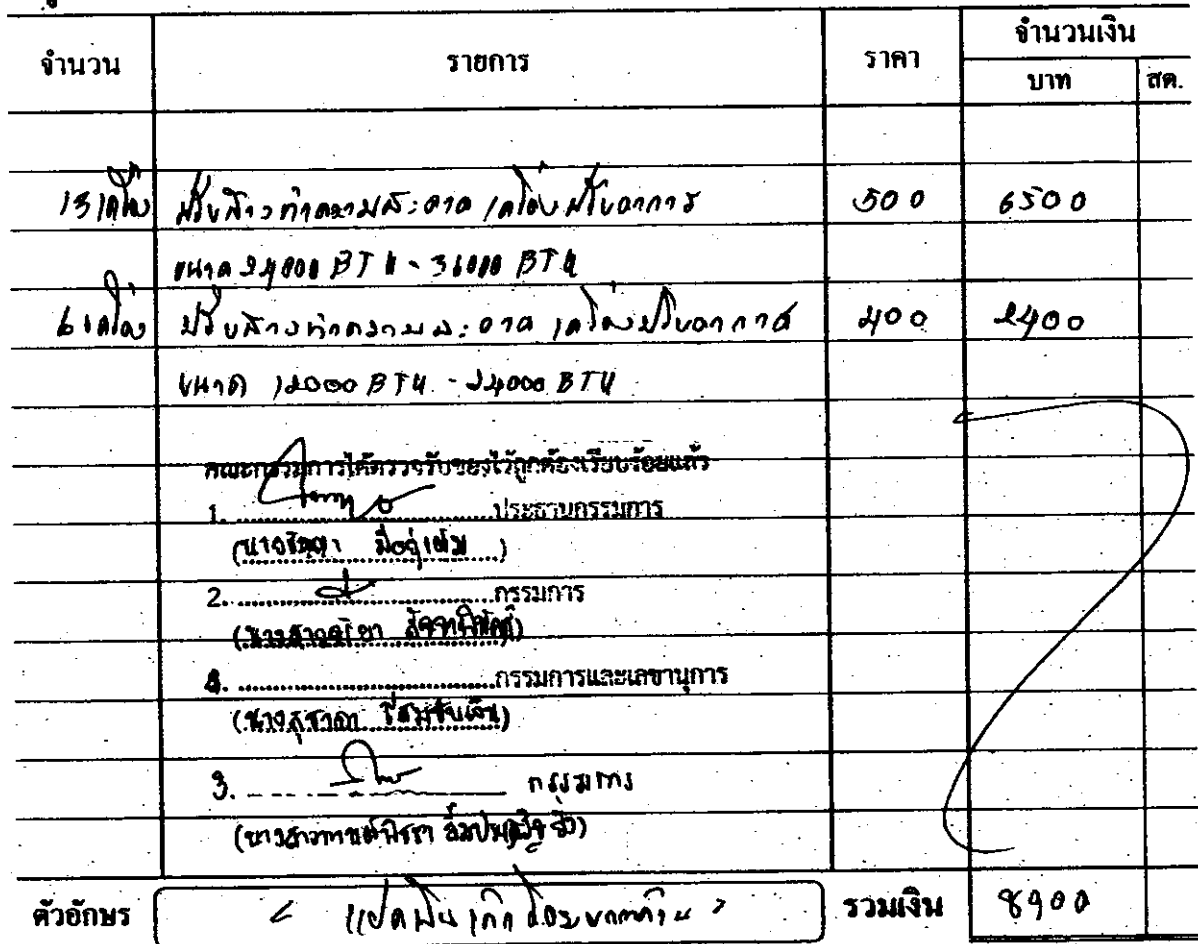 จำนวน รายการ ราคา จำนวนเงิน
บาท สต.
13 เครื่อง ปรับล้างทำความสะอาด เครื่องปรับอากาศ 500 6500
ขนาด 24000 BTU - 36000 BTU
6 เครื่อง ปรับล้างทำความสะอาด เครื่องปรับอากาศ 400 2400
ขนาด 12000 BTU - 24000 BTU
คณะกรรมการได้ตรวจรับของไว้ถูกต้องเรียบร้อยแล้ว
1. ประธานกรรมการ
2. กรรมการ
(นางสาว
4. กรรมการและเลขานุการ
(นางสุชาดา
3. กรรมการ
(นางสาว
ตัวอักษร แปดพันเก้าร้อยบาทถ้วน รวมเงิน 8900